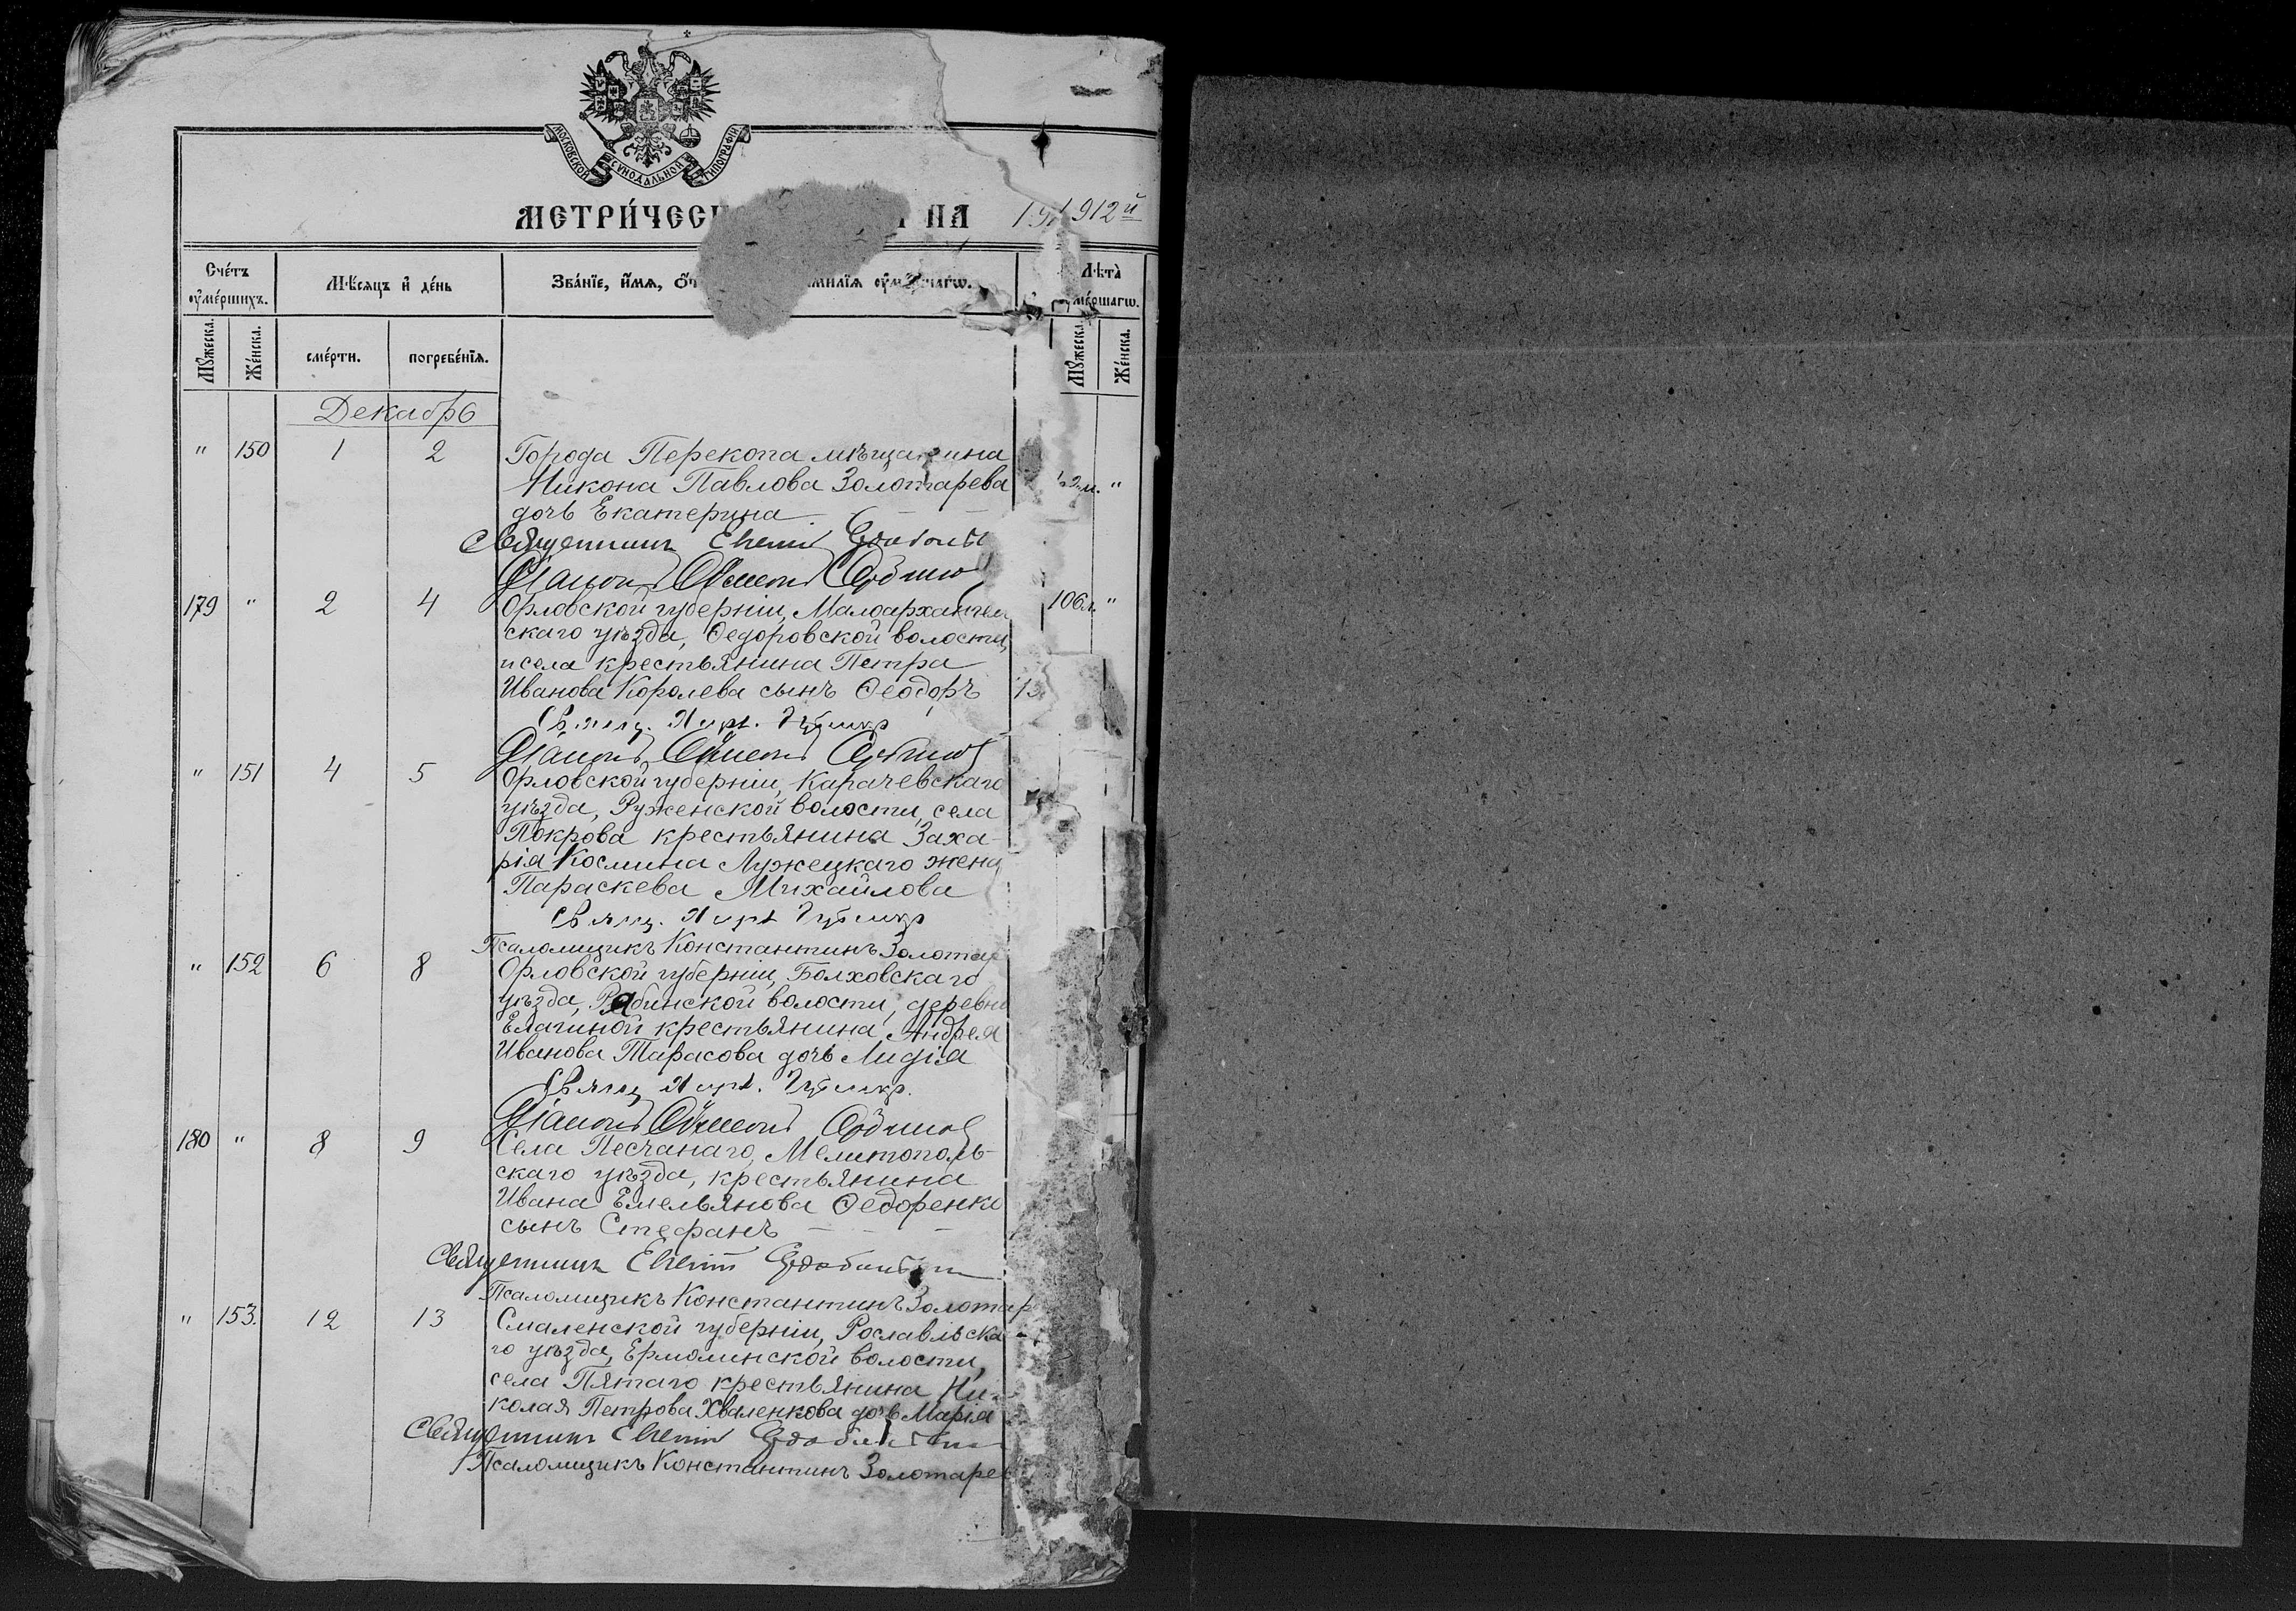 МОСКОВСКОЙ СѴНОДАЛЬНОЙ ТИПОГРАФІИ
МЕТРИ́ЧЕС НА 1912й
Сче́тъ ᲂу҆ме́ршихъ.
Мѣ́сяцъ и҆ де́нь
Зва́нїе, и҆́мя, ѻ҆́ч милїя
Лѣта̀ ме́ршагѡ.
Мꙋ́жеска.
Же́нска.
сме́рти.
погребе́нїя.
Мꙋ́жеска.
Же́нска.
Декабрь
" 150 1 2 Города Перекопа мѣщанина
Никона Павлова Золотарева 2 м. "
дочь Екатерина
Священникъ
Діаконъ Симеонъ
179 " 2 4 Орловской губерніи, Малоархангел 106 л. "
скаго уѣзда, Ѳедоровской волости,
и села крестьянина Петра
Иванова Королева сынъ Ѳеодоръ 13
Свящ.
Діаконъ Симеонъ
" 151 4 5 Орловской губерніи, Карачевскаго
уѣзда, Руженской волости, села
Покрова крестьянина Заха-
рія Космина Лужецкаго жена
Параскева Михайлова
Свящ.
Псаломщикъ Константинъ Золотар
" 152 6 8 Орловской губерніи, Болховскаго
уѣзда, Рябинской волости, деревни
Елагиной крестьянина Андрея
Иванова Тарасова дочь Лидія
Свящ.
Діаконъ Симеонъ
180 " 8 9 Села Песчанаго, Мелитополь-
скаго уѣзда, крестьянина
Ивана Емельянова Ѳедоренко
сынъ Стефанъ
Священникъ
Псаломщикъ Константинъ Золотар
" 153. 12 13 Смоленской губерніи, Рославльска-
го уѣзда, Ермолинской волости,
села Пятаго крестьянина Ни-
колая Петрова Хваленкова дочь Марія
Священникъ
Псаломщикъ Константинъ Золотарев